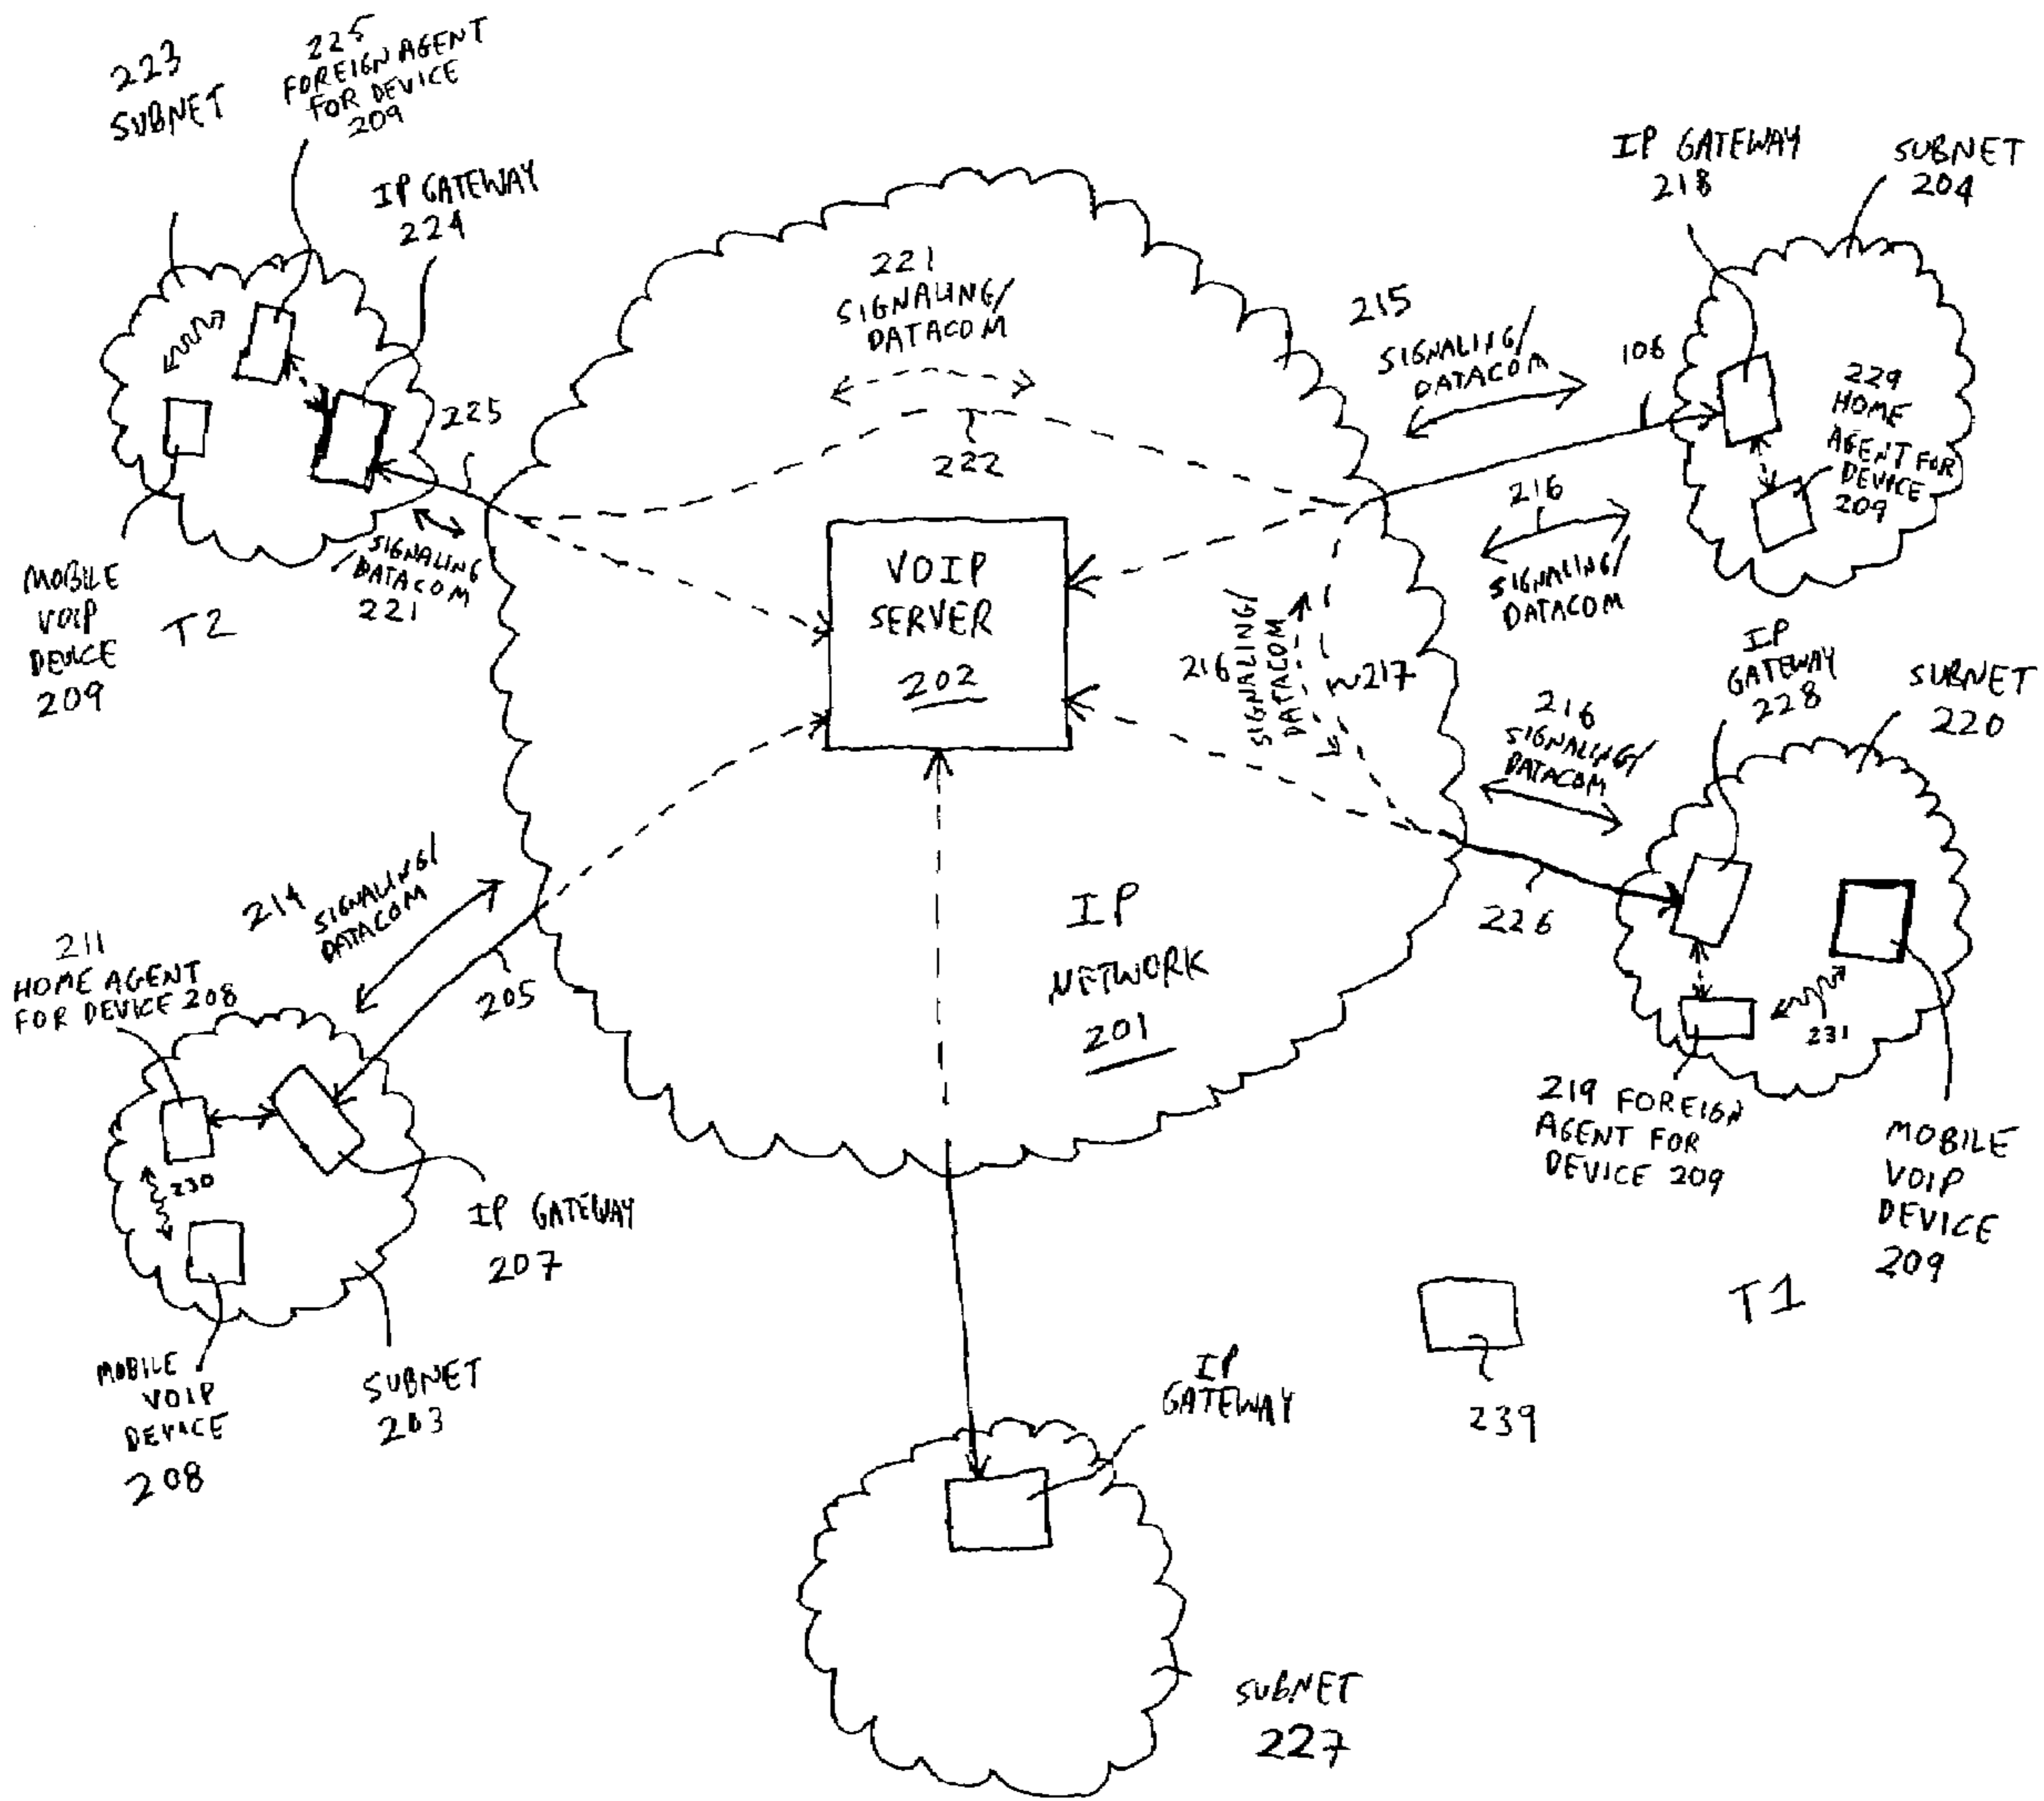 223
SUBNET
225
FOREIGN AGENT
FOR DEVICE
209
IP GATEWAY
224
225
MOBILE
VOIP
DEVICE
209
T2
SIGNALING
/DATACOM
221
221
SIGNALING/
DATACOM
222
VOIP
SERVER
202
IP GATEWAY
218
SUBNET
204
215
SIGNALING/
DATACOM
106
229
HOME
AGENT FOR
DEVICE
209
216
SIGNALING/
DATACOM
216
SIGNALING/
DATACOM
217
IP
GATEWAY
228
SUBNET
220
216
SIGNALING/
DATACOM
226
231
219 FOREIGN
AGENT FOR
DEVICE 209
MOBILE
VOIP
DEVICE
209
T1
214
SIGNALING/
DATACOM
205
IP
NETWORK
201
211
HOME AGENT
FOR DEVICE 208
230
IP GATEWAY
207
MOBILE
VOIP
DEVICE
208
SUBNET
203
IP
GATEWAY
239
SUBNET
227